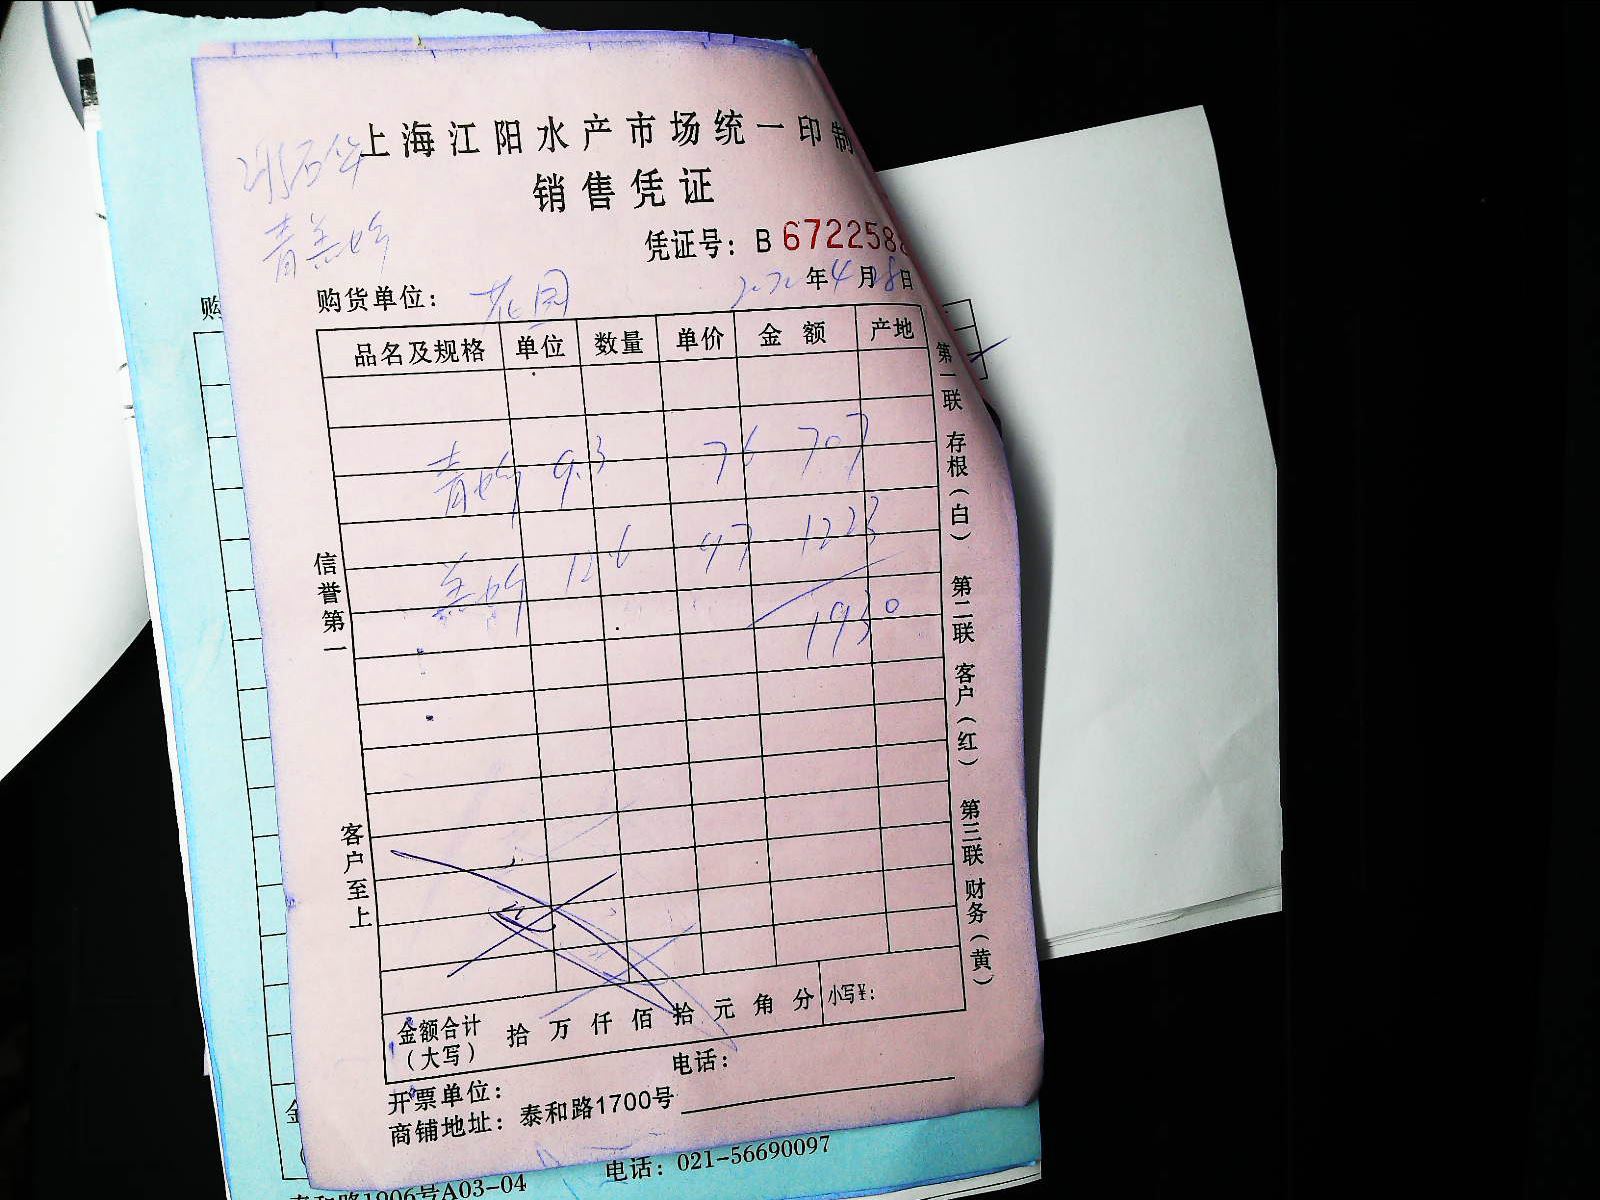 上海江阳水产市场统一印制
销售凭证
青羔蛤
凭证号：B 672258
购货单位：花园 2020年4月28日
品名及规格 单位 数量 单价 金额 产地
青蛤 9.3 76 707
羔蛤 12.6 97 1223
1930
信誉第一
客户至上
第一联 存根（白） 第二联 客户（红） 第三联 财务（黄）
金额合计（大写） 拾 万 仟 佰 拾 元 角 分 小写¥：
开票单位： 电话：
商铺地址：泰和路1700号
购
金
电话：021-56690097
泰和路1906号A03-04